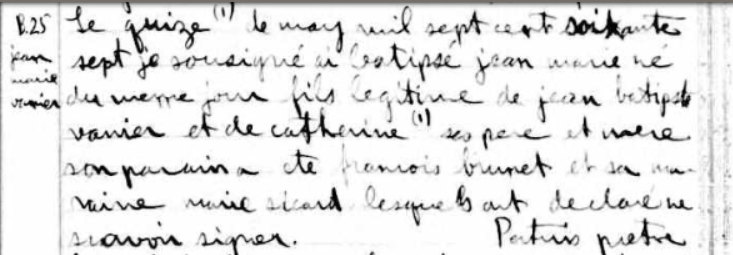 B.25 Le quize (1) de may mil sept cent soixante
jean sept je sousigné ai batipsé jean marie né
marie du meme jour fils legitime de jean batipste
vanier vanier et de catherine (1) ses pere et mere
son parain a ete francois brunet et sa ma-
raine marie sicard lesquels ont declaré ne
scavoir signer. Patuis pretre